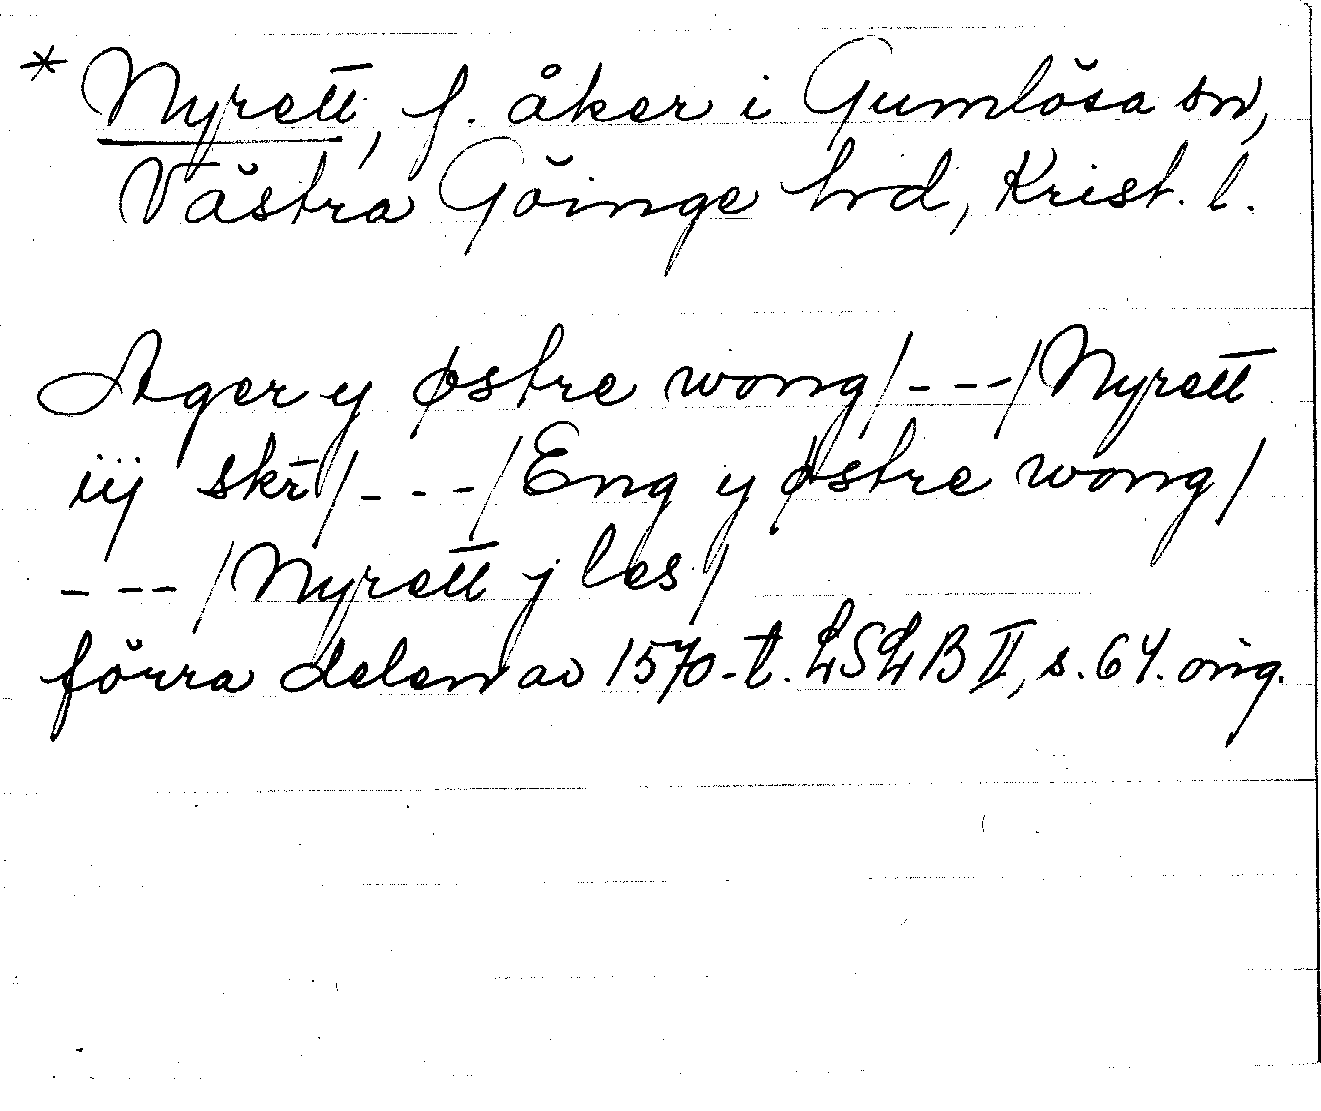 * Nyrett, f. åker i Gumlösa sn,
Västra Göinge hd, Krist. l.
Ager y østre wong/---/Nyrett
iij skr̄/---/Eng y østre wong/
---/Nyrett j les/
förra delen av 1570-t. LSLB II, s. 64. orig.